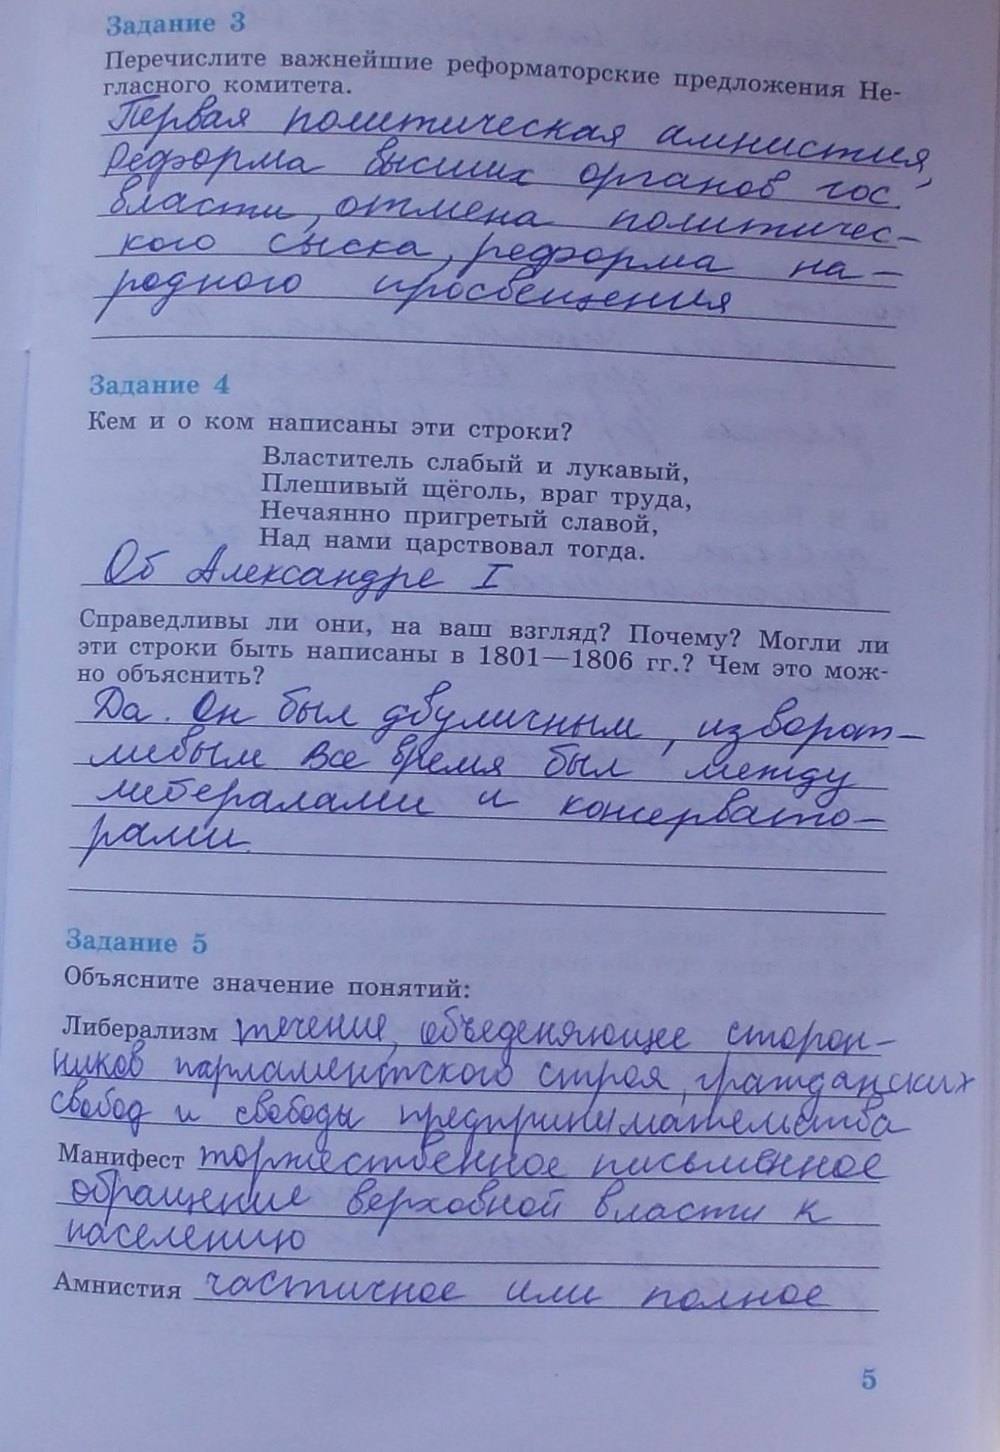 Задание 3
Перечислите важнейшие реформаторские предложения Не-
гласного комитета.
Первая политическая амнистия,
Реформа высших органов гос.
власти, отмена политичес-
кого сыска, реформа на-
родного просвещения
Задание 4
Кем и о ком написаны эти строки?
Властитель слабый и лукавый,
Плешивый щёголь, враг труда,
Нечаянно пригретый славой,
Над нами царствовал тогда.
Об Александре I
Справедливы ли они, на ваш взгляд? Почему? Могли ли
эти строки быть написаны в 1801—1806 гг.? Чем это мож-
но объяснить?
Да. Он был двуличным, изворот-
ливым все время был между
либералами и консервато-
рами.
Задание 5
Объясните значение понятий:
Либерализм течение, объеденяющее сторон-
ников парламентского строя, гражданских
свобод и свободы предпринимательства
Манифест торжественное письменное
обращение верховной власти к
населению
Амнистия частичное или полное
5